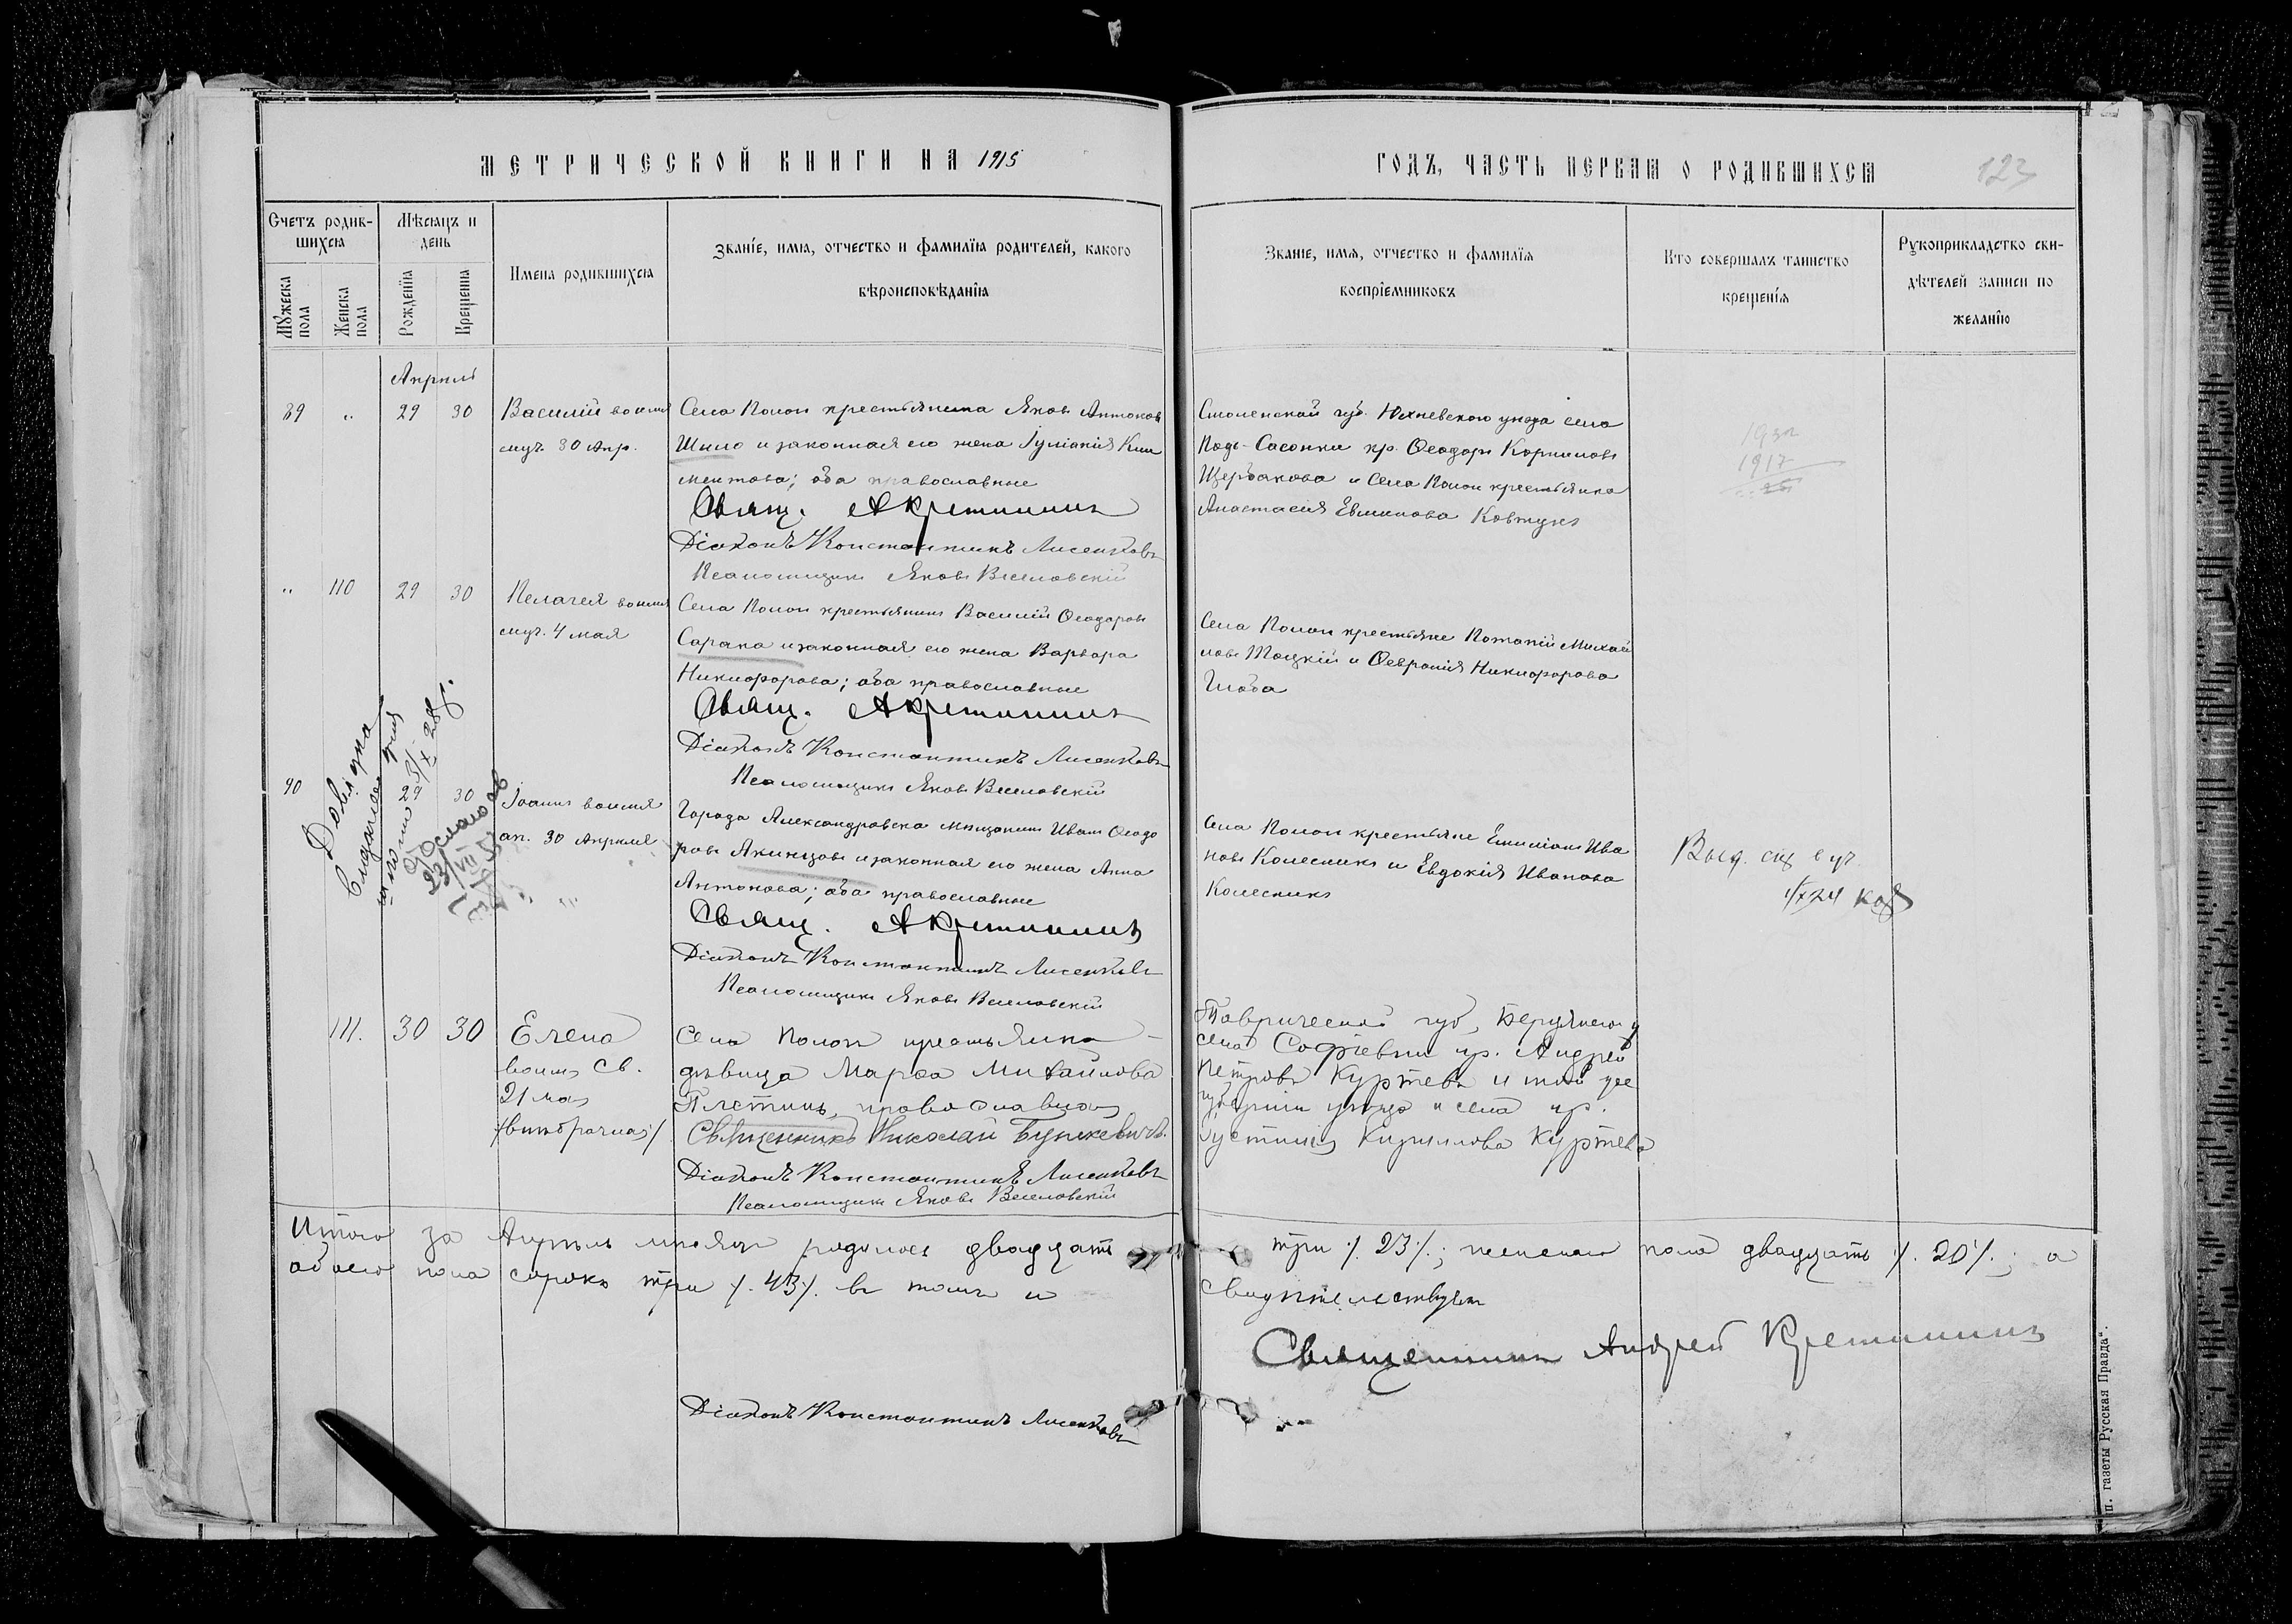 МЕТРИЧЕСКОЙ КНИГИ НА 1915
ГОДЪ, ЧАСТЬ ПЕРВАЯ О РОДИВШИХСЯ
123
Счетъ родив-
шихся
Мѣсяцъ и
день
Мужеска
пола
Женска
пола
Рожденїя
Крещенїя
Имена родившихся
Званїе, имя, отчество и фамилїя родителей, какого
вѣроисповѣданїя
Званїе, имя, отчество и фамилїя
воспрїемниковъ
Кто совершалъ таинство
крещенїя
Рукоприкладство сви-
дѣтелей записи по
желанїю
Апрѣль
89 „ 29 30
Василій во имя
муч. 30 Апр.
Села Пологъ крестьянинъ Яковъ Антоновъ
Шило и законная его жена Іуліанія Кли
ментова; оба православные
Свящ. А Кретининъ
Діаконъ Константинъ Лисенковъ
Псаломщикъ Яковъ Веселовскій
Смоленской губ. Юхневского уѣзда села
Подъ-Сасонки кр. Ѳеодоръ Корниловъ
Щербакова и Села Пологъ крестьянка
Анастасія Евминова Ковтунъ
1917
„ 110 29 30
Пелагея во имя
муч. 4 мая
Села Пологъ крестьянинъ Василій Ѳеодоровъ
Сарана и законная его жена Варвара
Никифорова; оба православные
Свящ. А Кретининъ
Діаконъ Константинъ Лисенковъ
Псаломщикъ Яковъ Веселовскій
Села Пологъ крестьяне Потапій Михай
ловъ Тоцкій и Ѳевронія Никифорова
Глоба
90 29 30
Іоаннъ во имя
ап. 30 Апрѣля
Города Александровска мѣщанинъ Иванъ Ѳеодо
ровъ Акинцовъ и законная его жена Анна
Антонова; оба православные
Свящ. А Кретининъ
Діаконъ Константинъ Лисенковъ
Псаломщикъ Яковъ Веселовскій
Села Пологъ крестьяне Емиліанъ Ива
новъ Колесникъ и Евдокія Иванова
Колесникъ
111. 30 30
Елена
во имя Св.
21 мая
/внѣбрачная/
Села Пологъ крестьянка
дѣвица Марѳа Михайлова
Плетинь, православная
Священникъ Николай Буткевичъ.
Діаконъ Константинъ Лисенковъ
Псаломщикъ Яковъ Веселовскій
Таврической губ, Бердянского у
села Софіевки кр. Андрей
Петровъ Куртевъ и той же
губерніи уѣзда и села кр.
Іустинія Кириллова Куртева
Итого за Апрѣль мѣсяцъ родилось двадцать три /. 23 /.; женскаго пола двадцать /. 20 /.; а
обоего пола сорокъ три /. 43 /. въ томъ и свидѣтельствуемъ
Священникъ Андрей Кретининъ
Діаконъ Константинъ Лисенковъ
п. газеты Русская Правда“.